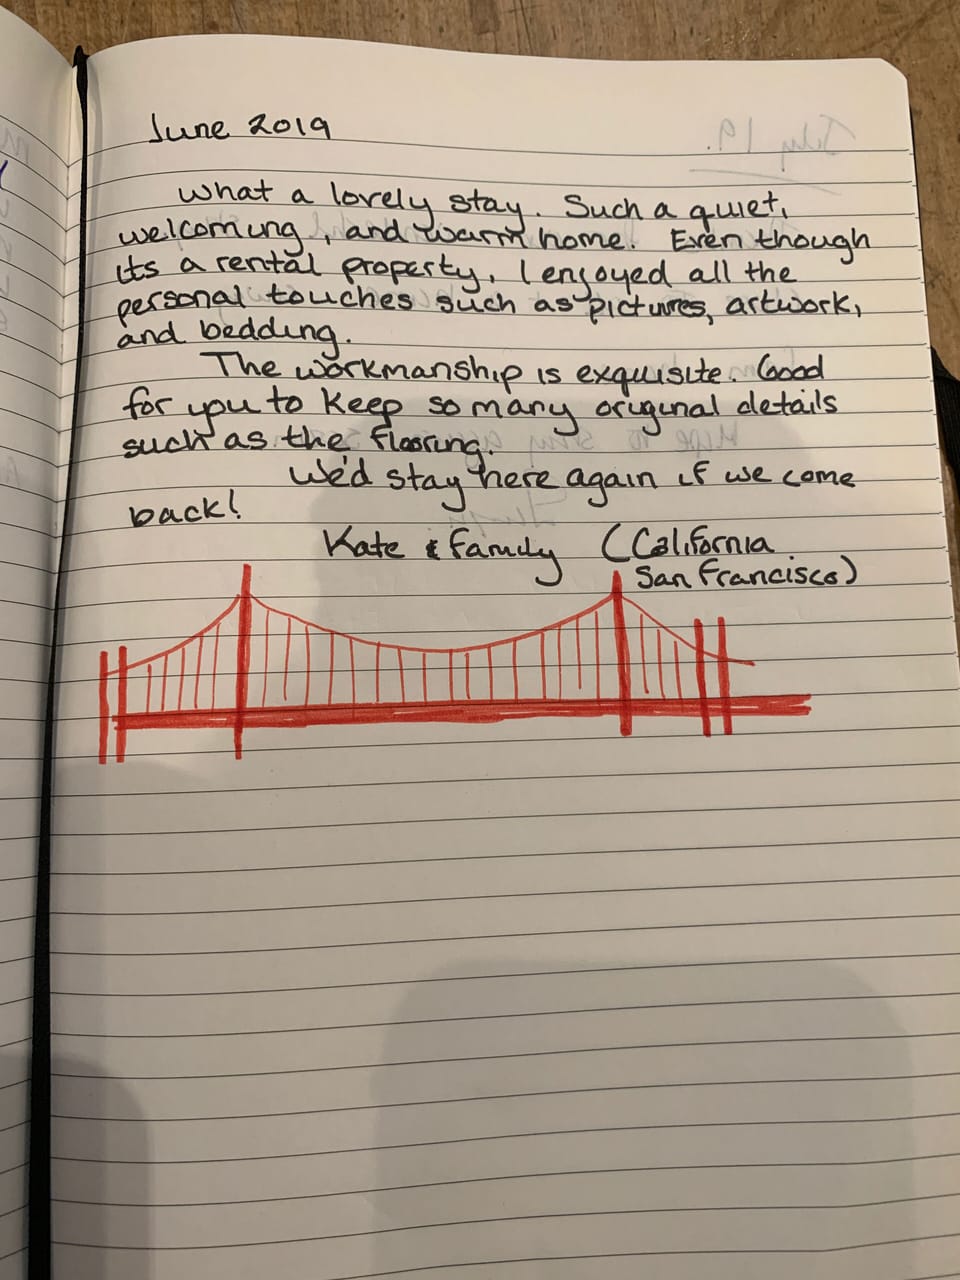 June 2019
What a lovely stay. Such a quiet,
welcoming, and warm home. Even though
its a rental property, I enjoyed all the
personal touches such as pictures, artwork,
and bedding.
The workmanship is exquisite. Good
for you to keep so many original details
such as the flooring.
We'd stay here again if we come
back!
Kate & family (California
San Francisco)
July 19.